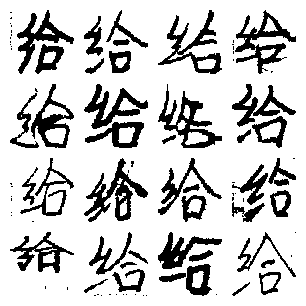 给给给给
给给给给
给给给给
给给给给